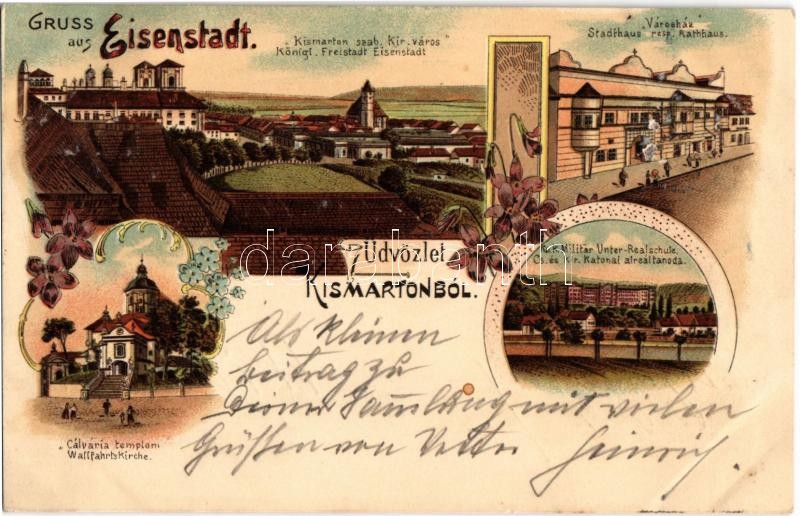 GRUSS
aus Eisenstadt.
"Kismarton szab. Kir. város"
Königl. Freistadt Eisenstadt
Városház
Stadthaus resp. Rathhaus.
K.K. Militär Unter-Realschule.
Cs. és Kir. Katonai alreáltanoda.
Üdvözlet
KISMARTONBÓL.
Cálvária templom
Wallfahrtskirche.
Als kleinen
Beitrag zu
Deiner Sammlung mit vielen
Grüßen von Vetter Heinrich
darabanth